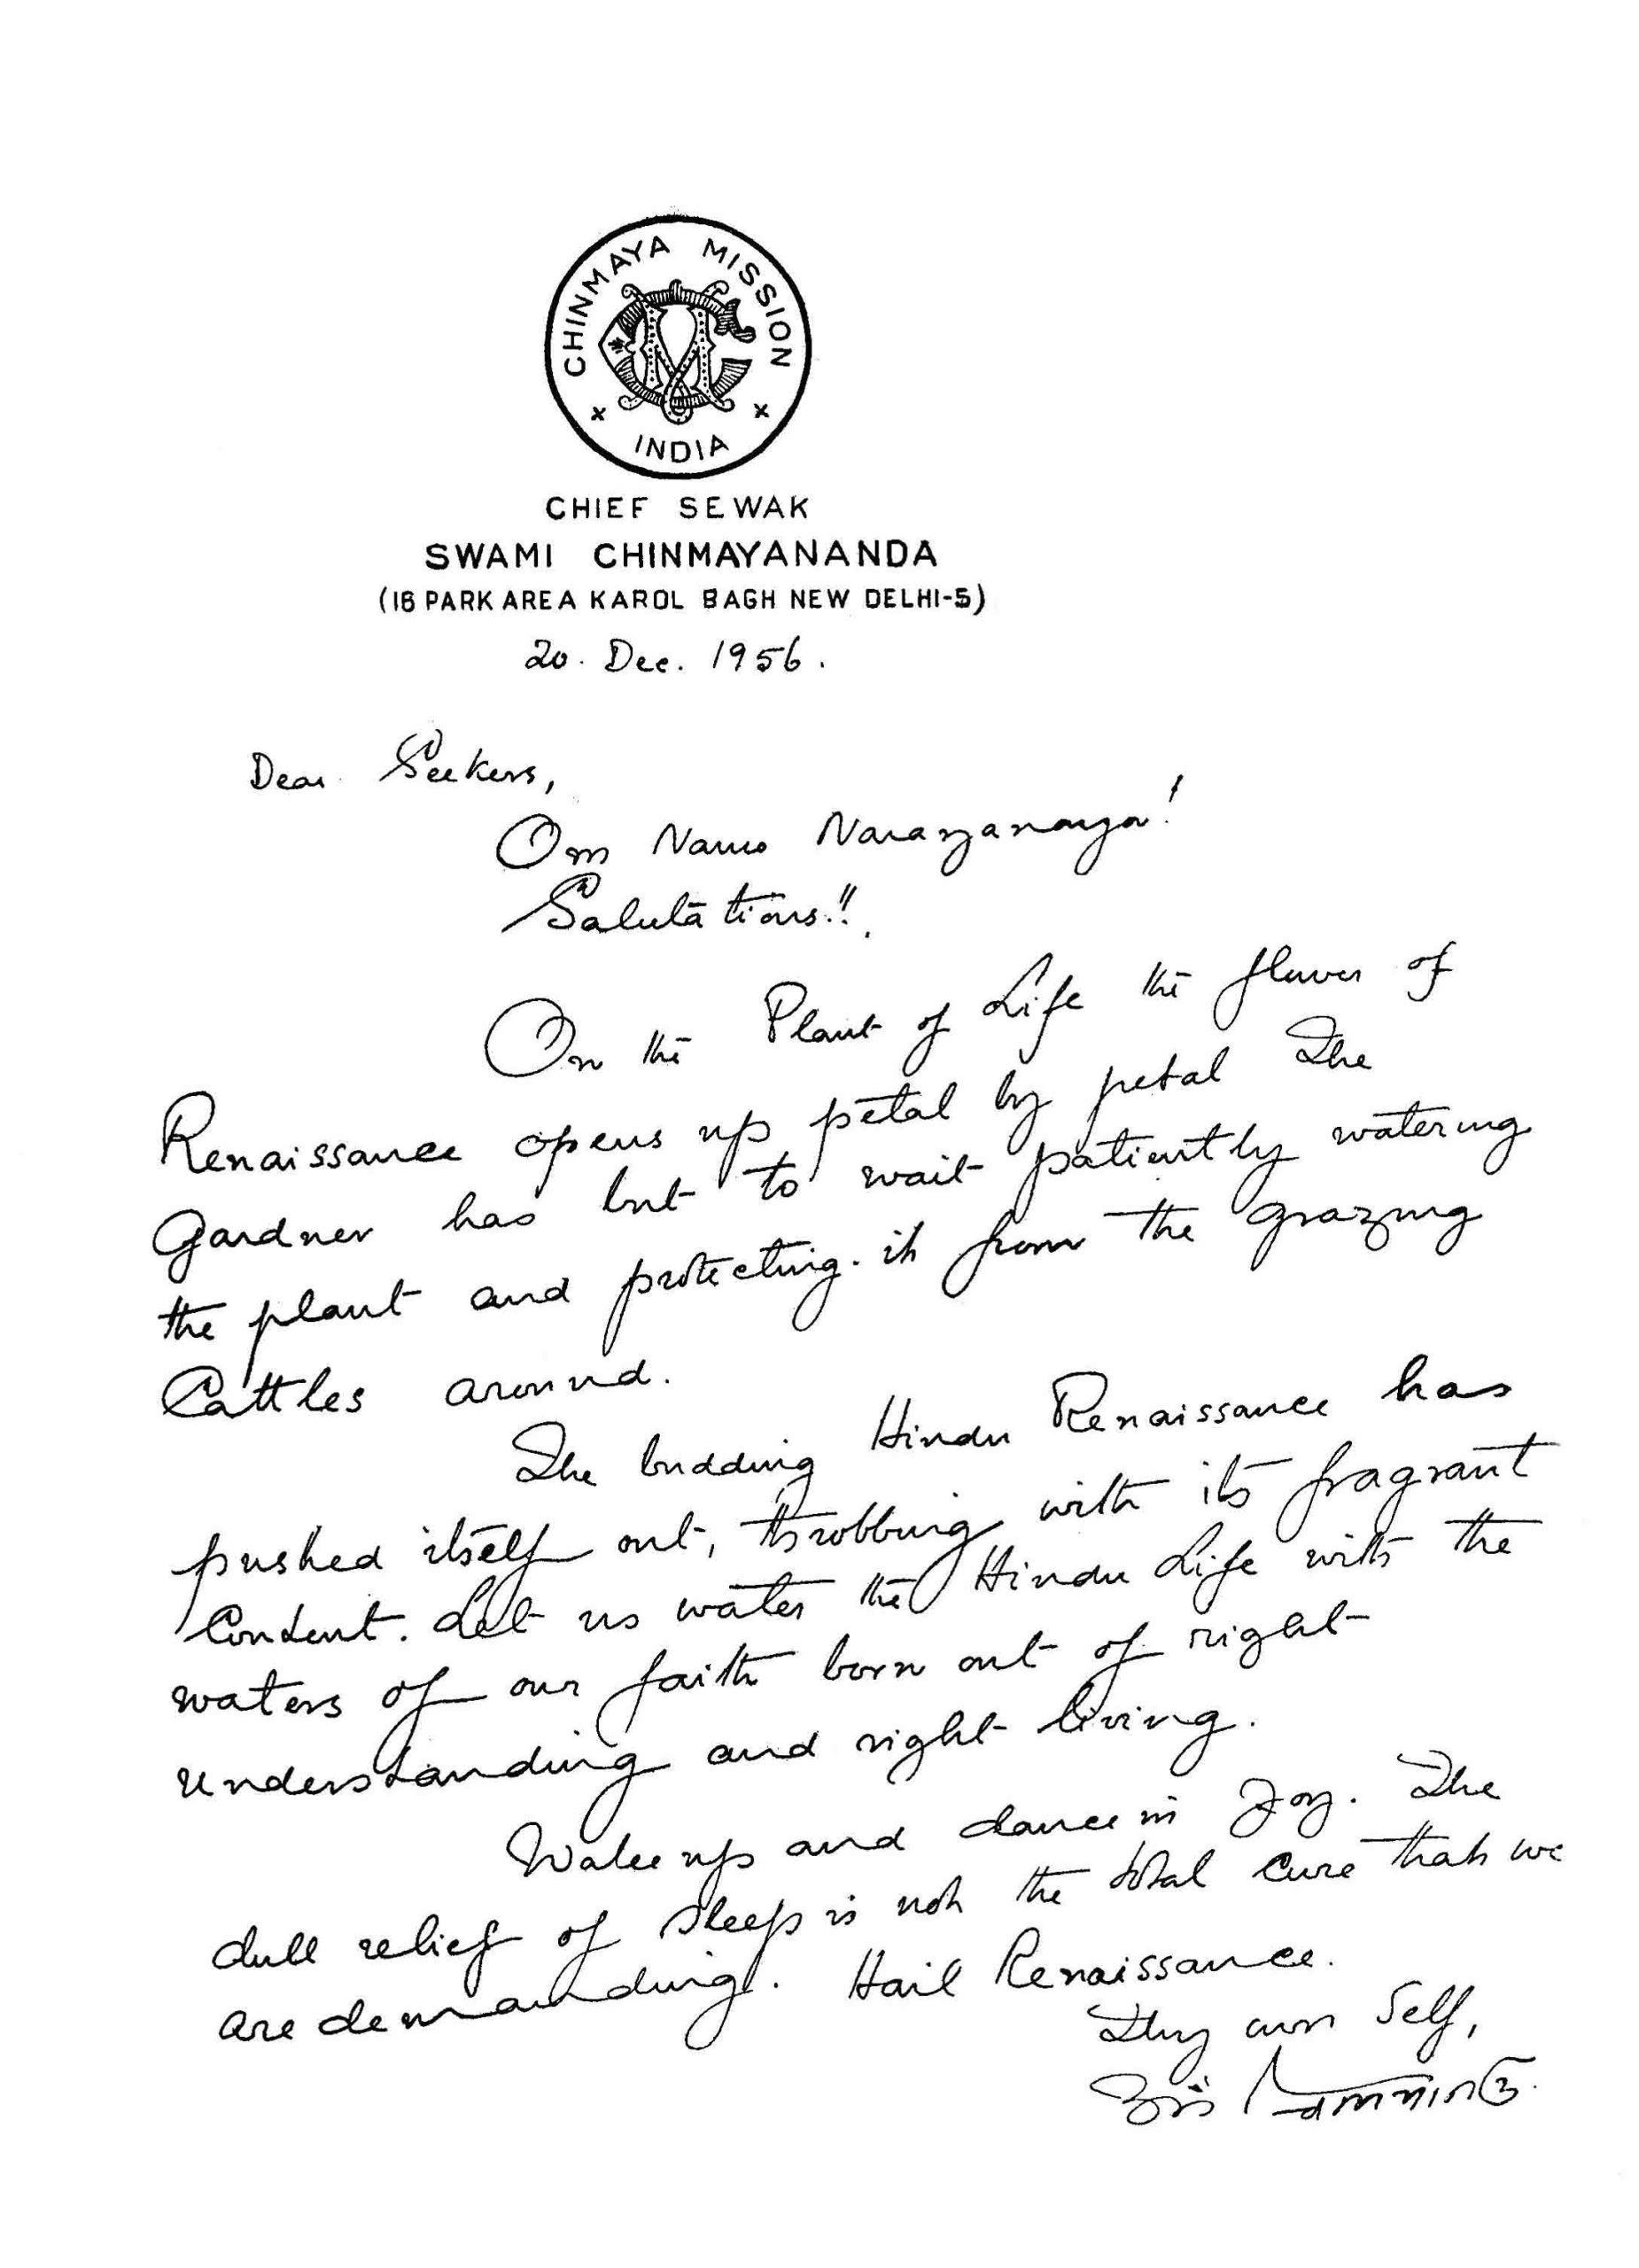 CHINMAYA MISSION
x INDIA x
CHIEF SEWAK
SWAMI CHINMAYANANDA
(16 PARK AREA KAROL BAGH NEW DELHI-5)
20. Dec. 1956.
Dear Seekers,
Om Namo Narayanaya!
Salutations!!
On the Plant of Life the flower of
Renaissance opens up petal by petal The
Gardner has but to wait patiently watering
the plant and protecting it from the grazing
Cattles around.
The budding Hindu Renaissance has
pushed itself out, throbbing with its fragrant
Content. Let us water the Hindu Life with the
waters of our faith born out of right
understanding and right living.
Wake up and dance in Joy. The
dull relief of sleep is not the total cure that we
are demanding. Hail Renaissance.
Thy own Self,